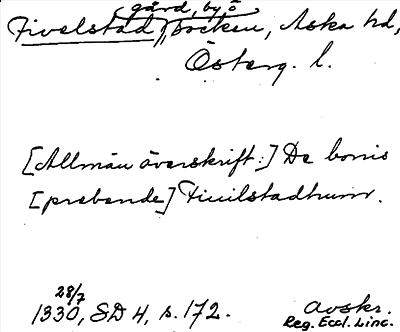 (gård, by ö
Fivelstad), socken, Aska hd,
Österg. l.
[Allmän överskrift:] De bonis
[prebende] Fiuilstadhum.
28/7
1330, SD 4, s. 172.
avskr.
Reg. Eccl. Linc.